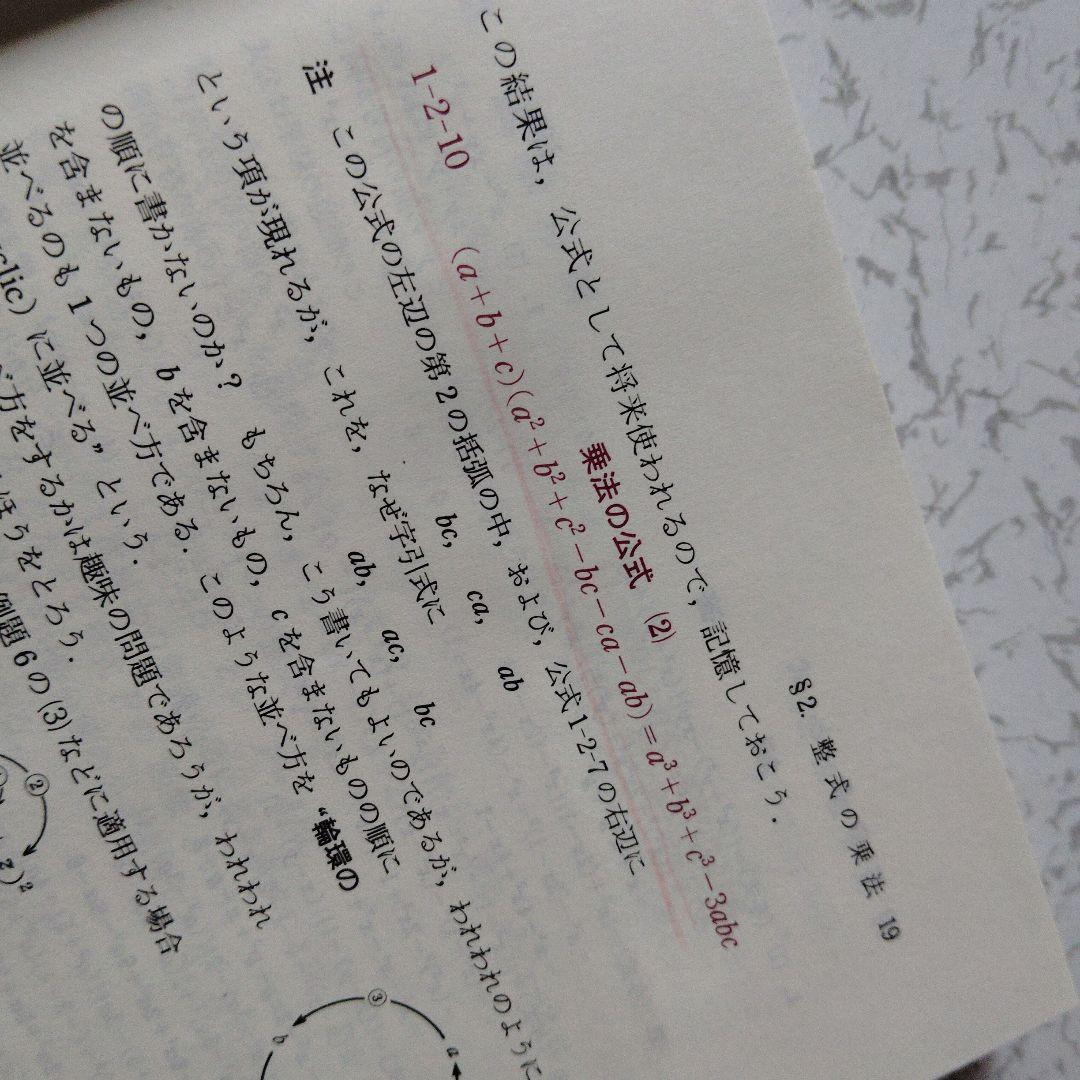 §2. 整式の乗法 19
この結果は，公式として将来使われるので，記憶しておこう．
乗法の公式 (2)
1-2-10 (a+b+c)(a²+b²+c²-bc-ca-ab)=a³+b³+c³-3abc
注 この公式の左辺の第2の括弧の中，および，公式1-2-7の右辺に
bc, ca, ab
という項が現れるが，これを，なぜ字引式に
ab, ac, bc
の順に書かないのか？ もちろん，こう書いてもよいのであるが，われわれのように
を含まないもの，bを含まないもの，cを含まないものの順に
並べるのも1つの並べ方である．このような並べ方を“輪環の
clic) に並べる”という．
方をするかは趣味の問題であろうが，われわれ
ほうをとろう．
例題6の(3)などに適用する場合
② 
z)²
③
b
a